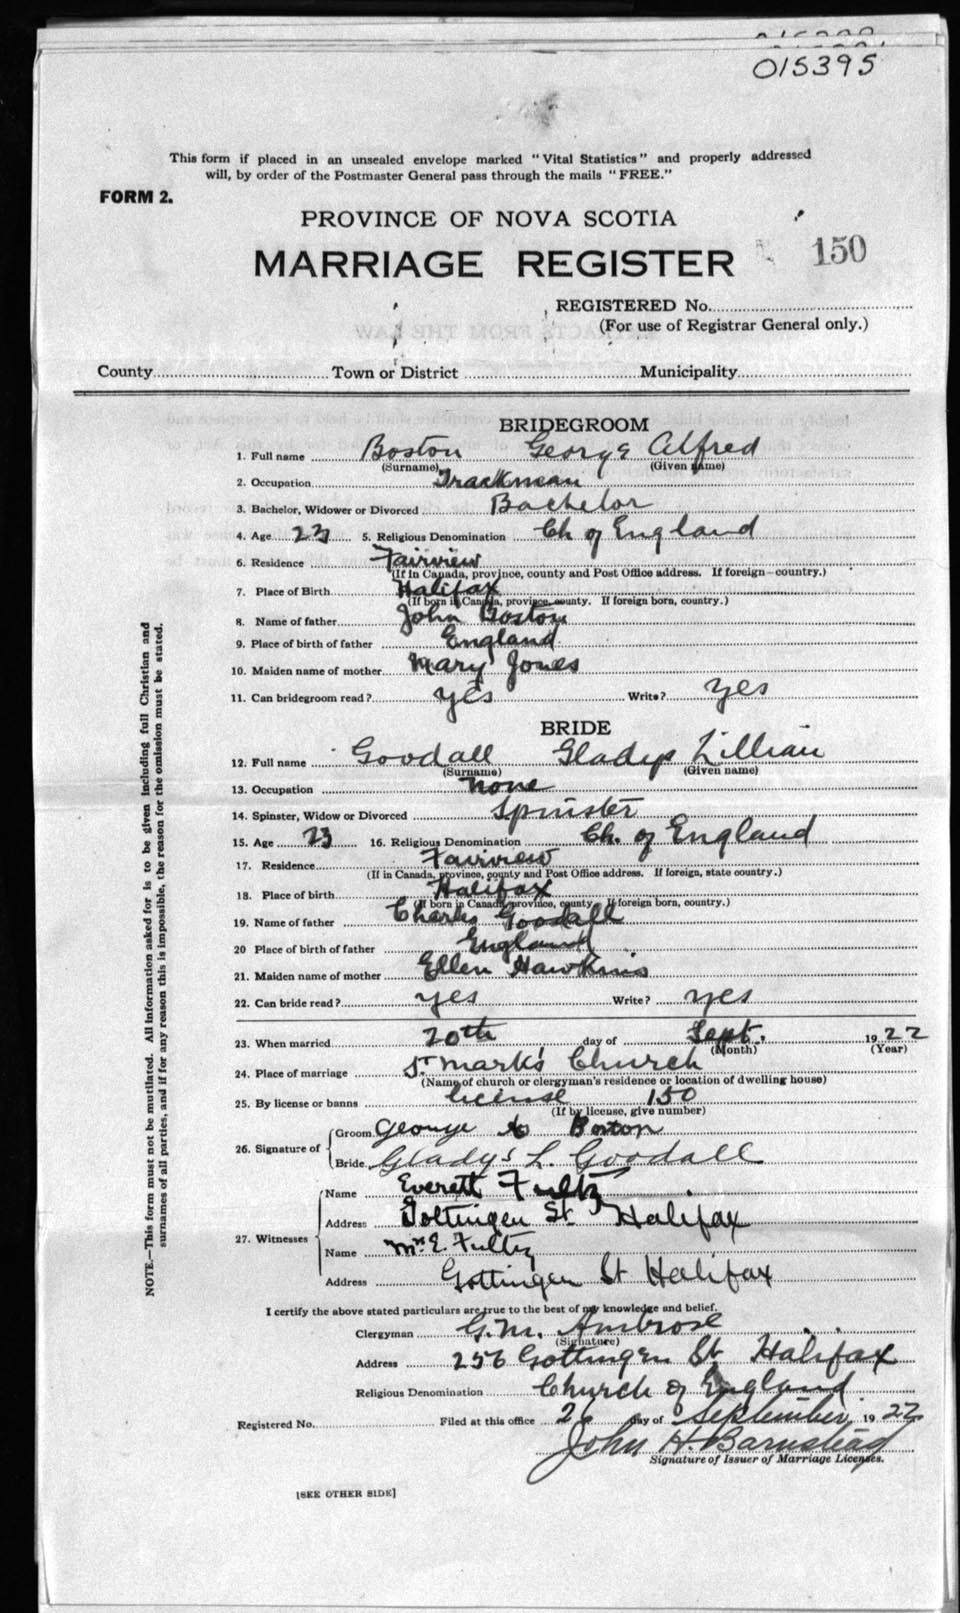 015395
This form if placed in an unsealed envelope marked "Vital Statistics" and properly addressed
will, by order of the Postmaster General pass through the mails "FREE."
FORM 2.
PROVINCE OF NOVA SCOTIA
MARRIAGE REGISTER 150
REGISTERED No.
(For use of Registrar General only.)
County Town or District Municipality
BRIDEGROOM
1. Full name Boston George Alfred
(Surname) (Given name)
2. Occupation Trackman
3. Bachelor, Widower or Divorced Bachelor
4. Age 23 5. Religious Denomination Ch of England
6. Residence Fairview
(If in Canada, province, county and Post Office address. If foreign—country.)
7. Place of Birth Halifax
(If born in Canada, province, county. If foreign born, country.)
8. Name of father John Boston
9. Place of birth of father England
10. Maiden name of mother Mary Jones
11. Can bridegroom read? yes Write? yes
BRIDE
12. Full name Goodall Gladys Lillian
(Surname) (Given name)
13. Occupation none
14. Spinster, Widow or Divorced Spinster
15. Age 23 16. Religious Denomination Ch. of England
17. Residence Fairview
(If in Canada, province, county and Post Office address. If foreign, state country.)
18. Place of birth Halifax
(If born in Canada, province, county. If foreign born, country.)
19. Name of father Charles Goodall
20 Place of birth of father England
21. Maiden name of mother Ellen Hawkins
22. Can bride read? yes Write? yes
23. When married 20th day of Sept. 1922
(Month) (Year)
24. Place of marriage St. Mark's Church
(Name of church or clergyman's residence or location of dwelling house)
25. By license or banns license 150
(If by license, give number)
26. Signature of Groom George A Boston
Bride Gladys L. Goodall
27. Witnesses Name Everett Fultz
Address Gottingen St Halifax
Name Mrs E. Fultz
Address Gottingen St Halifax
I certify the above stated particulars are true to the best of my knowledge and belief.
Clergyman G.M. Ambrose
(Signature)
Address 256 Gottingen St Halifax
Religious Denomination Church of England
Registered No. Filed at this office 26 day of September 1922
John H. Barnstead
Signature of Issuer of Marriage Licenses.
[SEE OTHER SIDE]
NOTE.—This form must not be mutilated. All information asked for is to be given including full Christian and
surnames of all parties, and if for any reason this is impossible, the reason for the omission must be stated.